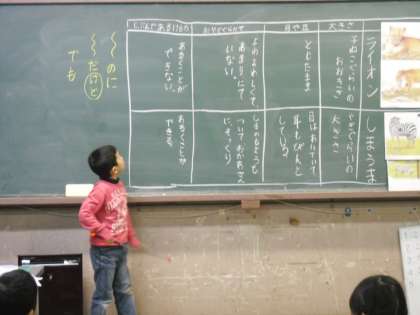 ライオン
しまうま
大きさ
子ねこぐらいの
おおきさ
やぎぐらいの
大きさ
目や耳
とじたまま
目はあいていて
耳もぴんと
している
よわよわしくて、
あまりにて
いない。
しまのもようも
ついておかあさん
にそっくり
あるくことが
できない。
あるくことが
できる。
〜のに
〜だけど
でも